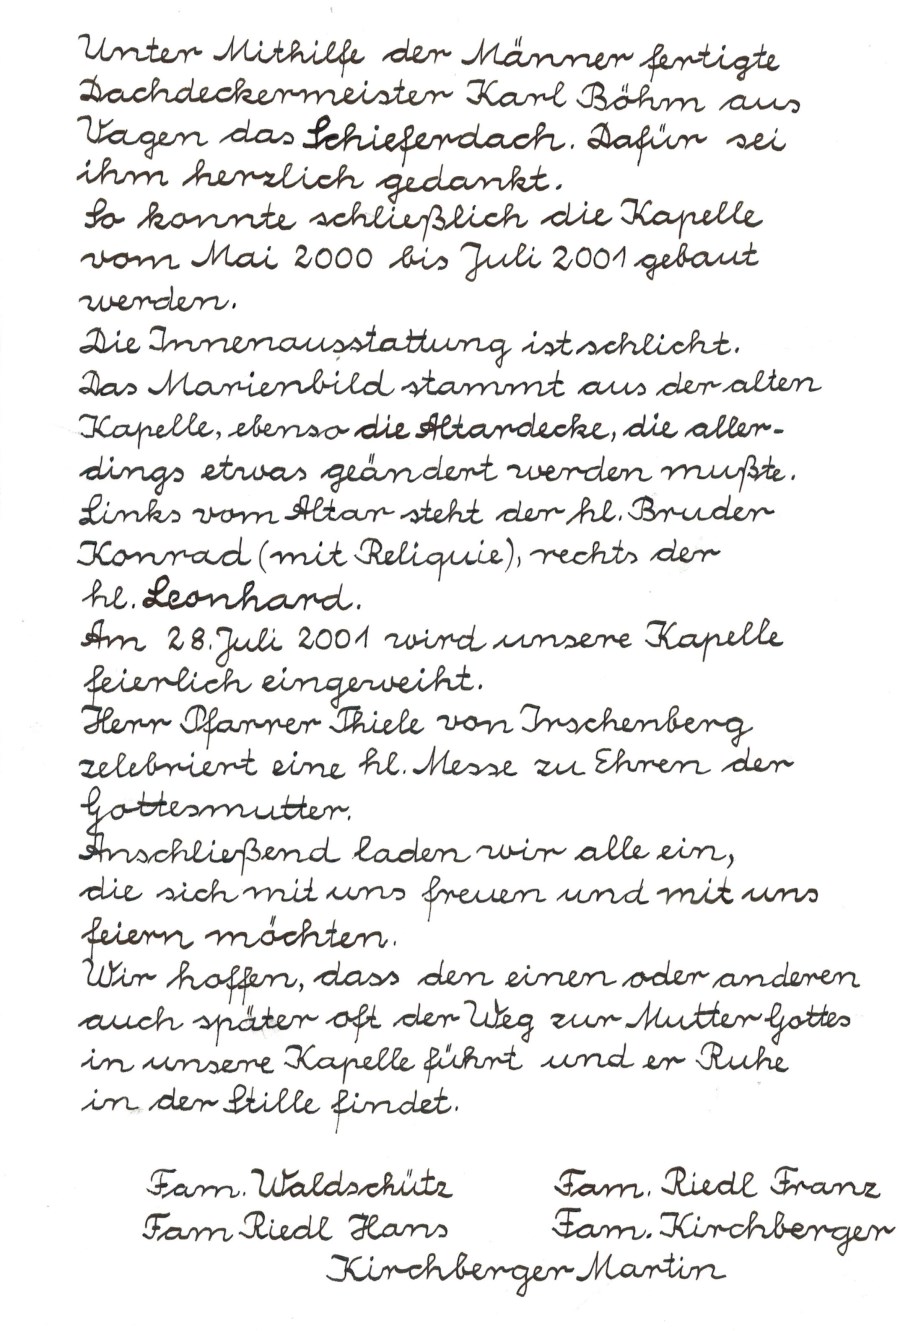 Unter Mithilfe der Männer fertigte
Dachdeckermeister Karl Böhm aus
Vagen das Schieferdach. Dafür sei
ihm herzlich gedankt.
So konnte schließlich die Kapelle
vom Mai 2000 bis Juli 2001 gebaut
werden.
Die Innenausstattung ist schlicht.
Das Marienbild stammt aus der alten
Kapelle, ebenso die Altardecke, die aller-
dings etwas geändert werden mußte.
Links vom Altar steht der hl. Bruder
Konrad (mit Reliquie), rechts der
hl. Leonhard.
Am 28. Juli 2001 wird unsere Kapelle
feierlich eingeweiht.
Herr Pfarrer Thiele von Irschenberg
zelebriert eine hl. Messe zu Ehren der
Gottesmutter.
Anschließend laden wir alle ein,
die sich mit uns freuen und mit uns
feiern möchten.
Wir hoffen, dass den einen oder anderen
auch später oft der Weg zur Mutter Gottes
in unsere Kapelle führt und er Ruhe
in der Stille findet.
Fam. Waldschütz Fam. Riedl Franz
Fam Riedl Hans Fam. Kirchberger
Kirchberger Martin